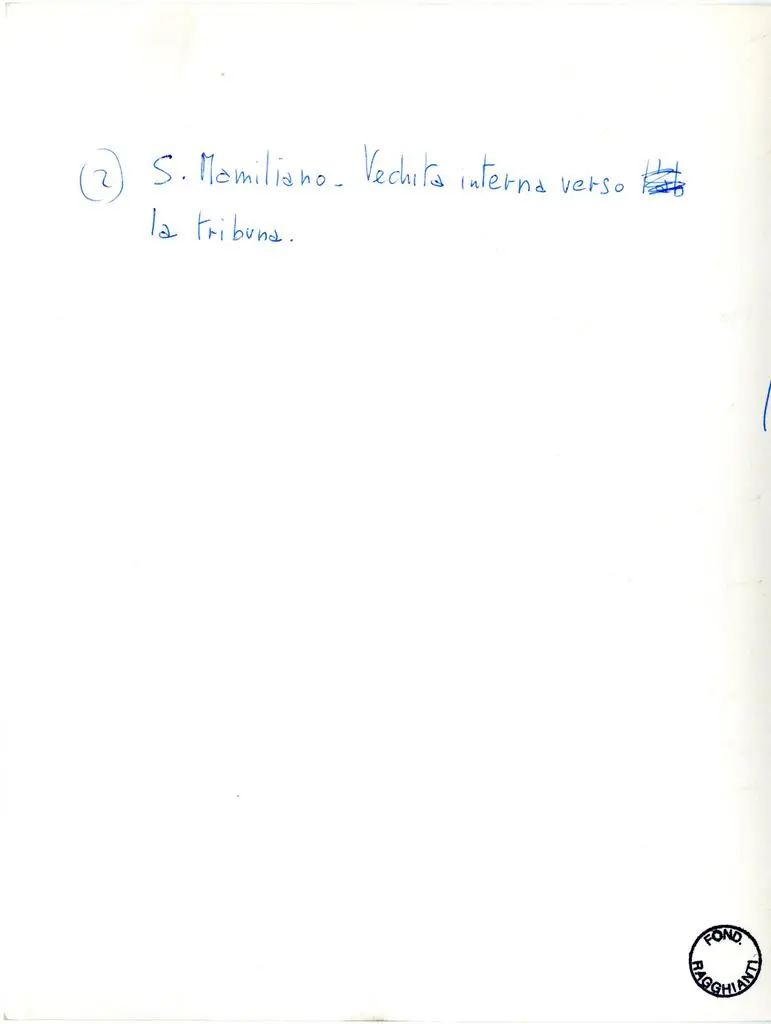 (2) S. Mamiliano - Vechita interna verso
la tribuna.
FOND.
RAGGHIANTI